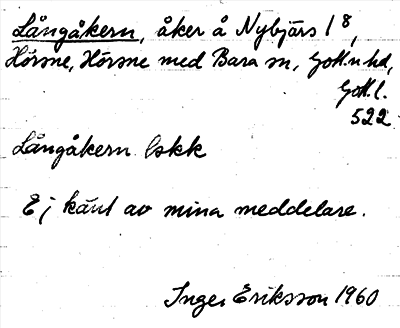 Långåkern, åker å Nybjärs 1⁸,
Hörsne, Hörsne med Bara sn, Gotl. n. hd,
Gotl. l.
522
Långåkern lskk
Ej känt av mina meddelare.
Inger Eriksson 1960